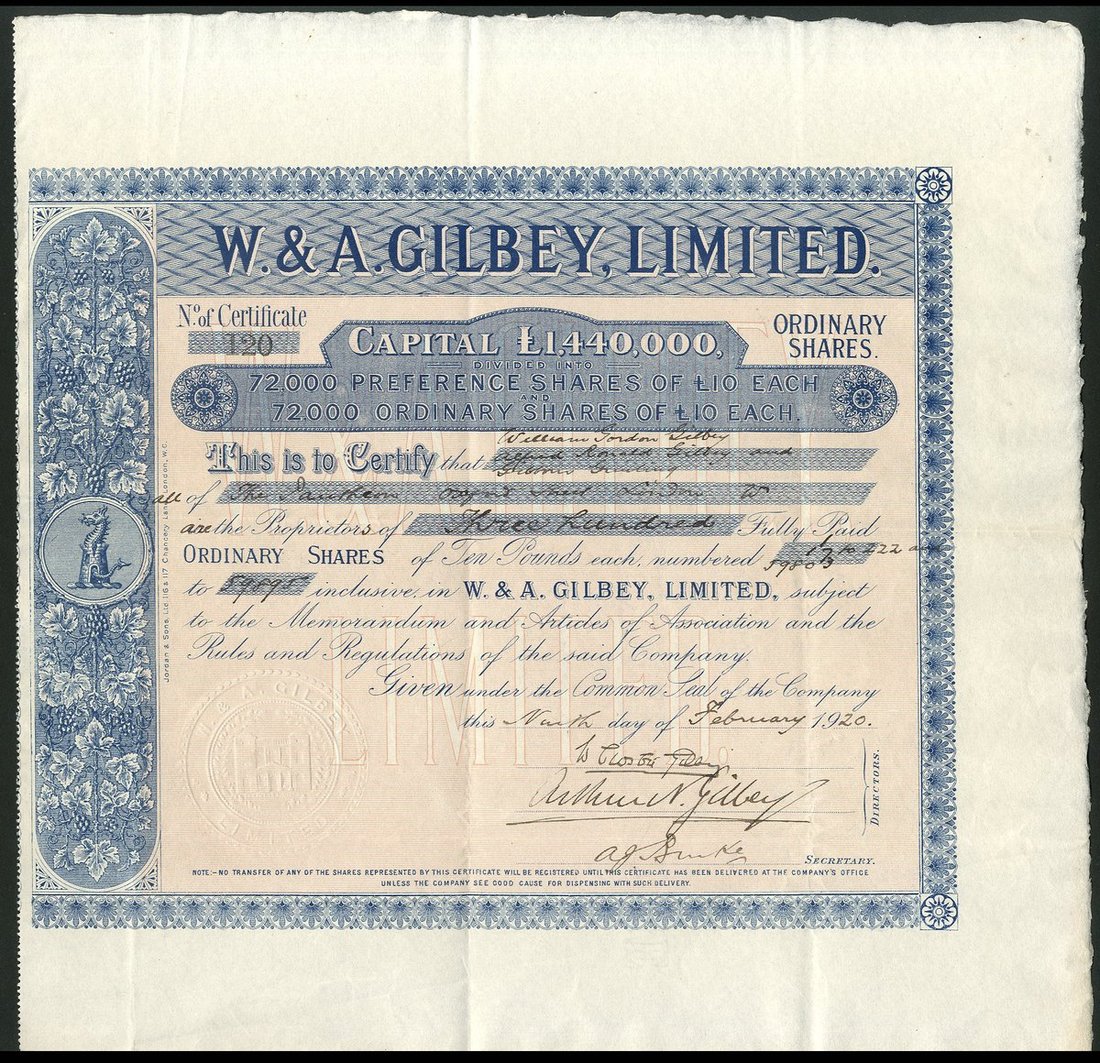 W. & A. GILBEY, LIMITED.
No. of Certificate
120
ORDINARY
SHARES.
CAPITAL £1,440,000,
DIVIDED INTO
72,000 PREFERENCE SHARES OF £10 EACH
AND
72,000 ORDINARY SHARES OF £10 EACH.
William Gordon Gilbey
This is to Certify that Alfred Ronald Gilbey and
all of The Pantheon Oxford Street London W
are the Proprietors of Three hundred Fully Paid
ORDINARY SHARES of Ten Pounds each, numbered
to inclusive, in W. & A. GILBEY, LIMITED, subject
to the Memorandum and Articles of Association and the
Rules and Regulations of the said Company.
Given under the Common Seal of the Company
this Ninth day of February 1920.
Arthur N. Gilbey
DIRECTORS.
A J Burke
SECRETARY.
NOTE:-NO TRANSFER OF ANY OF THE SHARES REPRESENTED BY THIS CERTIFICATE WILL BE REGISTERED UNTIL THIS CERTIFICATE HAS BEEN DELIVERED AT THE COMPANY'S OFFICE
UNLESS THE COMPANY SEE GOOD CAUSE FOR DISPENSING WITH SUCH DELIVERY.
Jordan & Sons, Ltd., 116 & 117 Chancery Lane, London, W.C.
W. & A. GILBEY
LIMITED